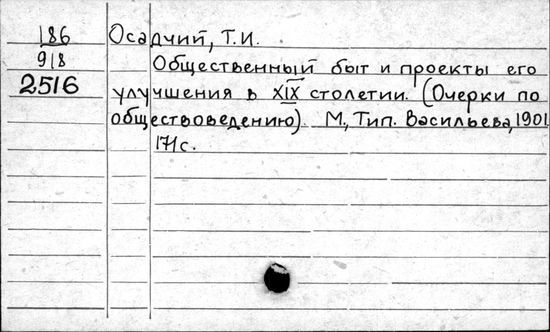 186 Осадчий, Т.И.
918 Общественный быт и проекты его
2516 улучшения в XIX столетии. (Очерки по
обществоведению). М., Тип. Васильева, 1901
171 с.